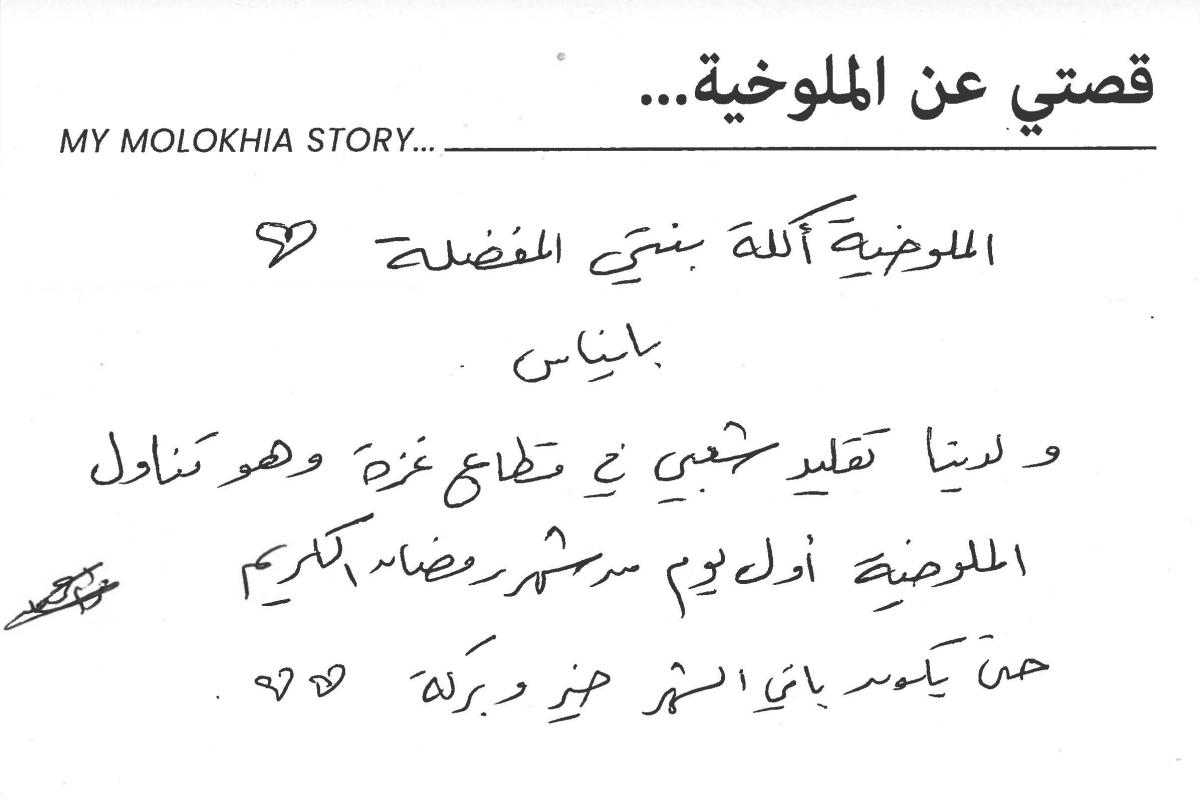 قصتي عن الملوخية...
MY MOLOKHIA STORY...
الملوخية أكلة بنتي المفضلة ♡
بانياس
ولدينا تقليد شعبي في قطاع غزة وهو تناول
الملوخية أول يوم من شهر رمضان الكريم
حتى يكون باقي الشهر خير وبركة ♡♡